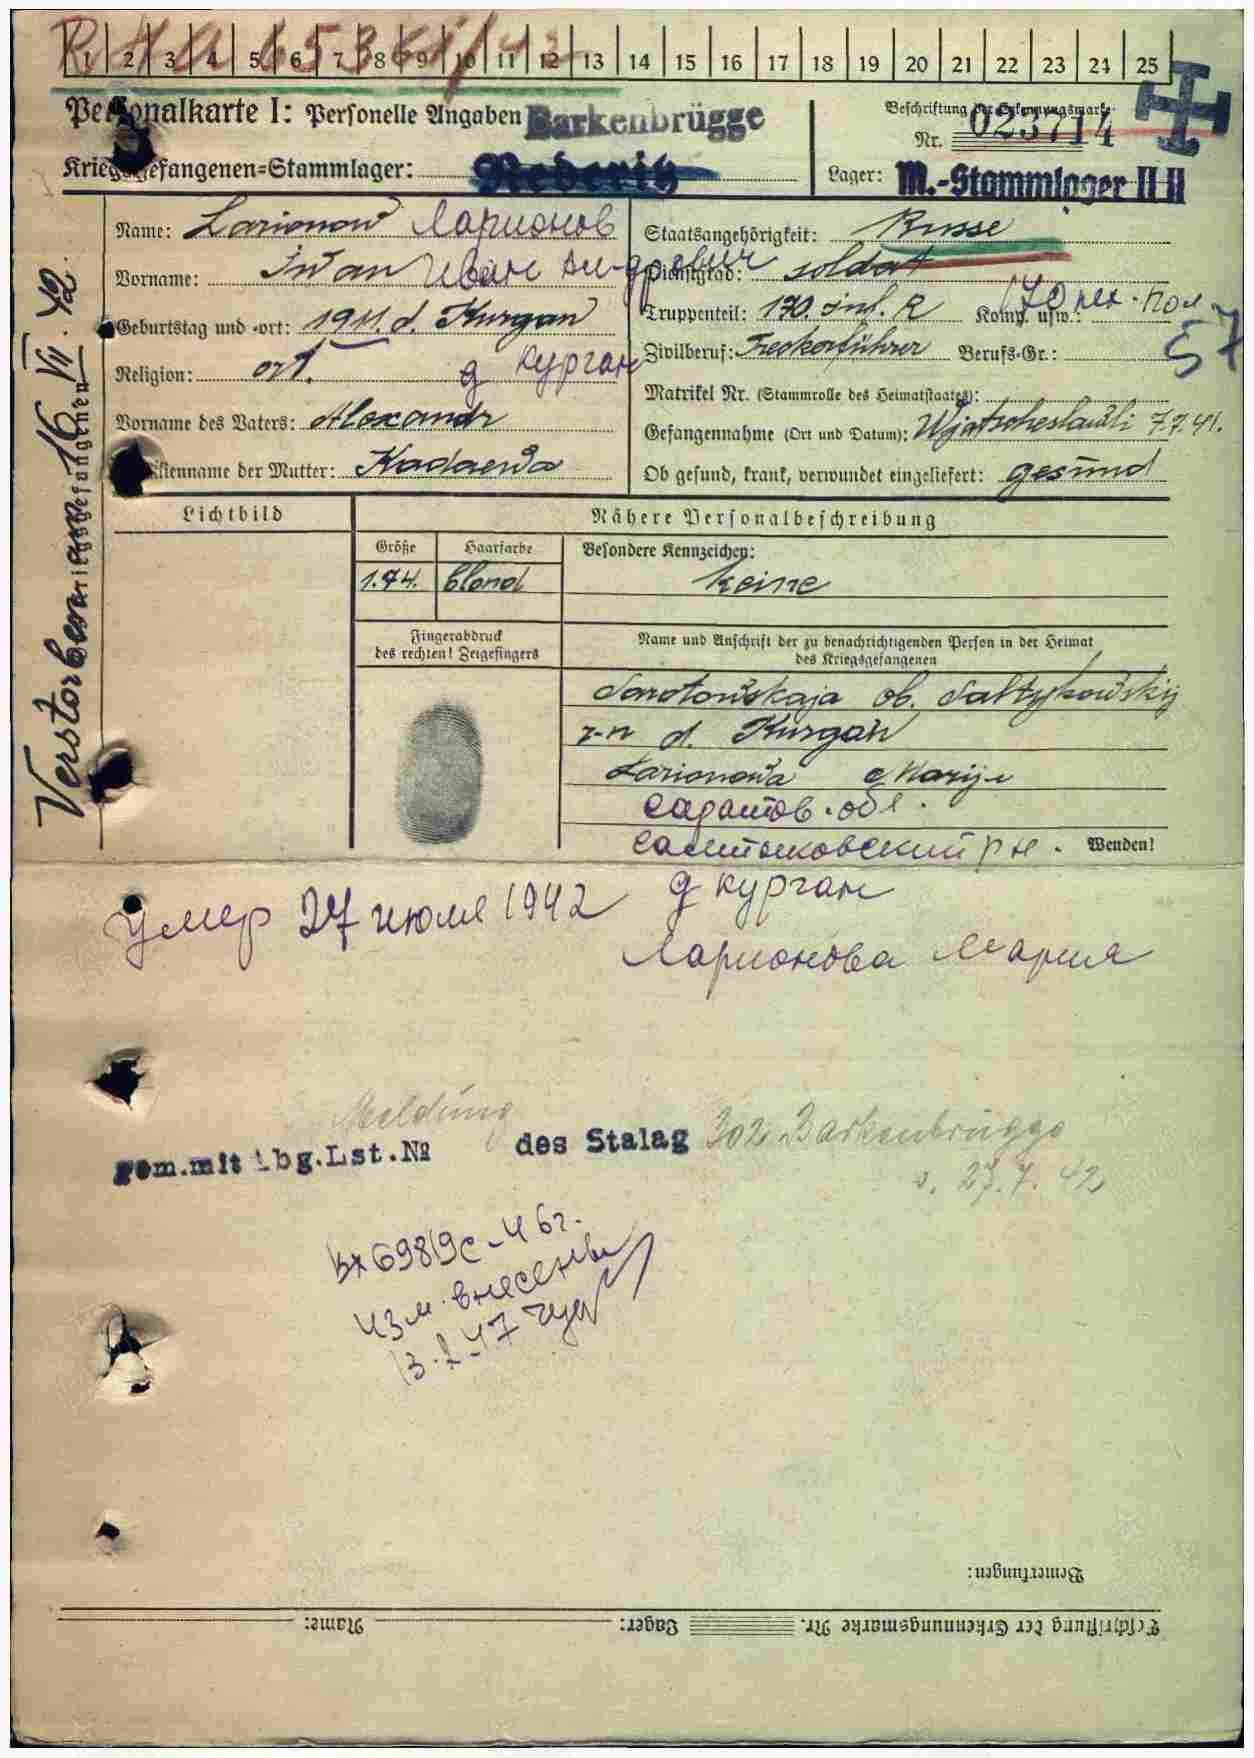 1 2 3 4 5 6 7 8 9 10 11 12 13 14 15 16 17 18 19 20 21 22 23 24 25
Personalkarte I: Personelle Angaben
Barkenbrügge
Kriegsgefangenen-Stammlager: Rederitz
Beschriftung der Erkennungsmarke
Nr. 023714
Lager: M.-Stammlager II H
des Kriegsgefangenen
Verstorben am 16. VII. 42.
Name: Larionow Ларионов
Vorname: Iwan Иван
Geburtstag und -ort: 1911. d. Kurgan
Religion: ort. д Курган
Vorname des Vaters: Alexandr
Familienname der Mutter: Kadaewa
Staatsangehörigkeit: Russe
Dienstgrad: soldat
Truppenteil: 170. Inf. R Komp. usw.: 170 пех. пол
57
Zivilberuf: Treckerführer Berufs-Gr.:
Matrikel Nr. (Stammrolle des Heimatstaates):
Gefangennahme (Ort und Datum): 7.7.41.
Ob gesund, krank, verwundet eingeliefert: gesund
Lichtbild
Nähere Personalbeschreibung
Größe Haarfarbe Besondere Kennzeichen:
1.74. blond keine
Fingerabdruck
des rechten! Zeigefingers
Name und Anschrift der zu benachrichtigenden Person in der Heimat
des Kriegsgefangenen
Sarotowskaja ob. Saltykowskij
r-n d. Kurgan
Larionowa Marija
Саратов. обл.
Салтыковский р н.
Wenden!
д Курган
Умер 27 июля 1942
Ларионова Мария
Meldung
gem. mit Abg.Lst.№ des Stalag 302 Barkenbrügge
v. 27.7.42
Вх 69819с-46г.
изм. внесены
13.2.47
Bemerkungen:
Beschriftung der Erkennungsmarke Nr. Lager: Name: